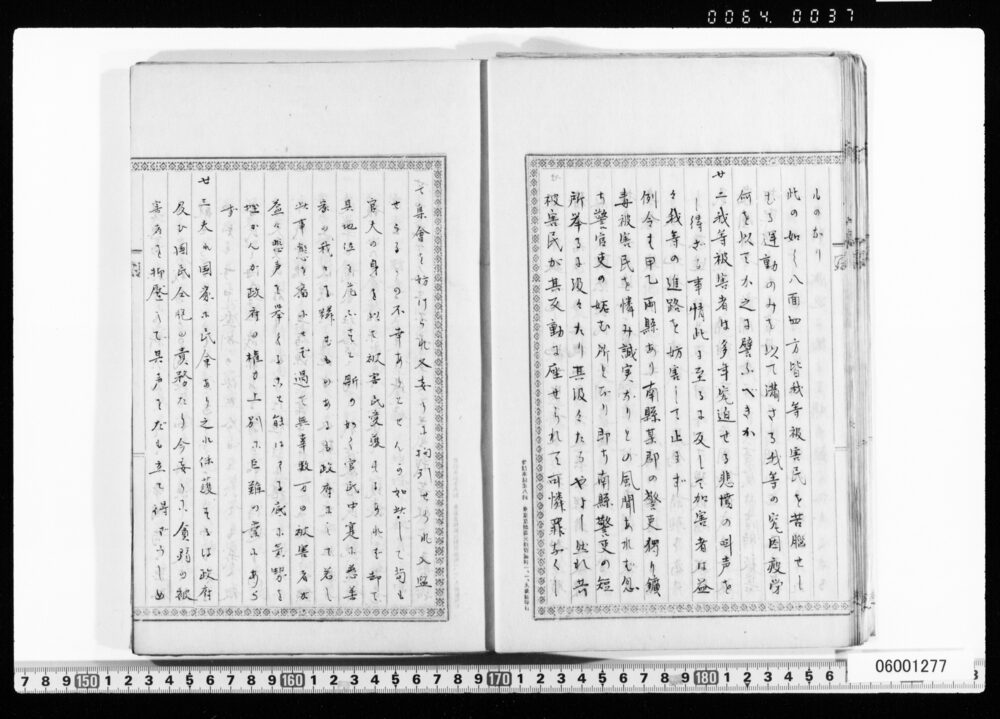 0064 0037
ルのなり
此の如く八面四方皆我等被害民を苦脳せし
むる運動のみを以て満さる我等の究困疲労
何を以てか之に譬ふべきか
廿二我等被害者は多年究迫せる悲憤の叫声を
し得ざる事情此に至るに反して加害者は益
々我等の進路を妨害して止まず
例令は甲乙両縣あり南縣某郡の警吏独り鑛
毒被害民を憐み誠実なりとの風聞あれば忽
ち警官吏の妬む所となり即ち南縣警吏の短
所挙るに汲々たり其汲々たるやよし此れ共
被害民が其反動に座せられて可憐罪なくし
て集會を妨けられ又妄りに拘引せられ入監
せらるゝの不幸ありとせんか如此して苟も
官人の身を以て被害民愛護するあれば却て
其地位を危ふすと斯の如く官民中寔に慈善
家の我々を隣むものあるも政府にして若し
此事態を痛にせず過て無辜数万の被害者は
益々怨声を挙くること能はざる底に気勢を
埋めんか政府の権力上別に巨難の業にあら
ず
廿三夫れ国家に民命あり之れ保護するは政府
及ひ国民全児の責務たり今妄りに貧弱の被
害者を抑壓して其声をだも立て得ざらしめ
7 8 9 150 1 2 3 4 5 6 7 8 9 160 1 2 3 4 5 6 7 8 9 170 1 2 3 4 5 6 7 8 9 180 1 2 3 4 5 6
06001277